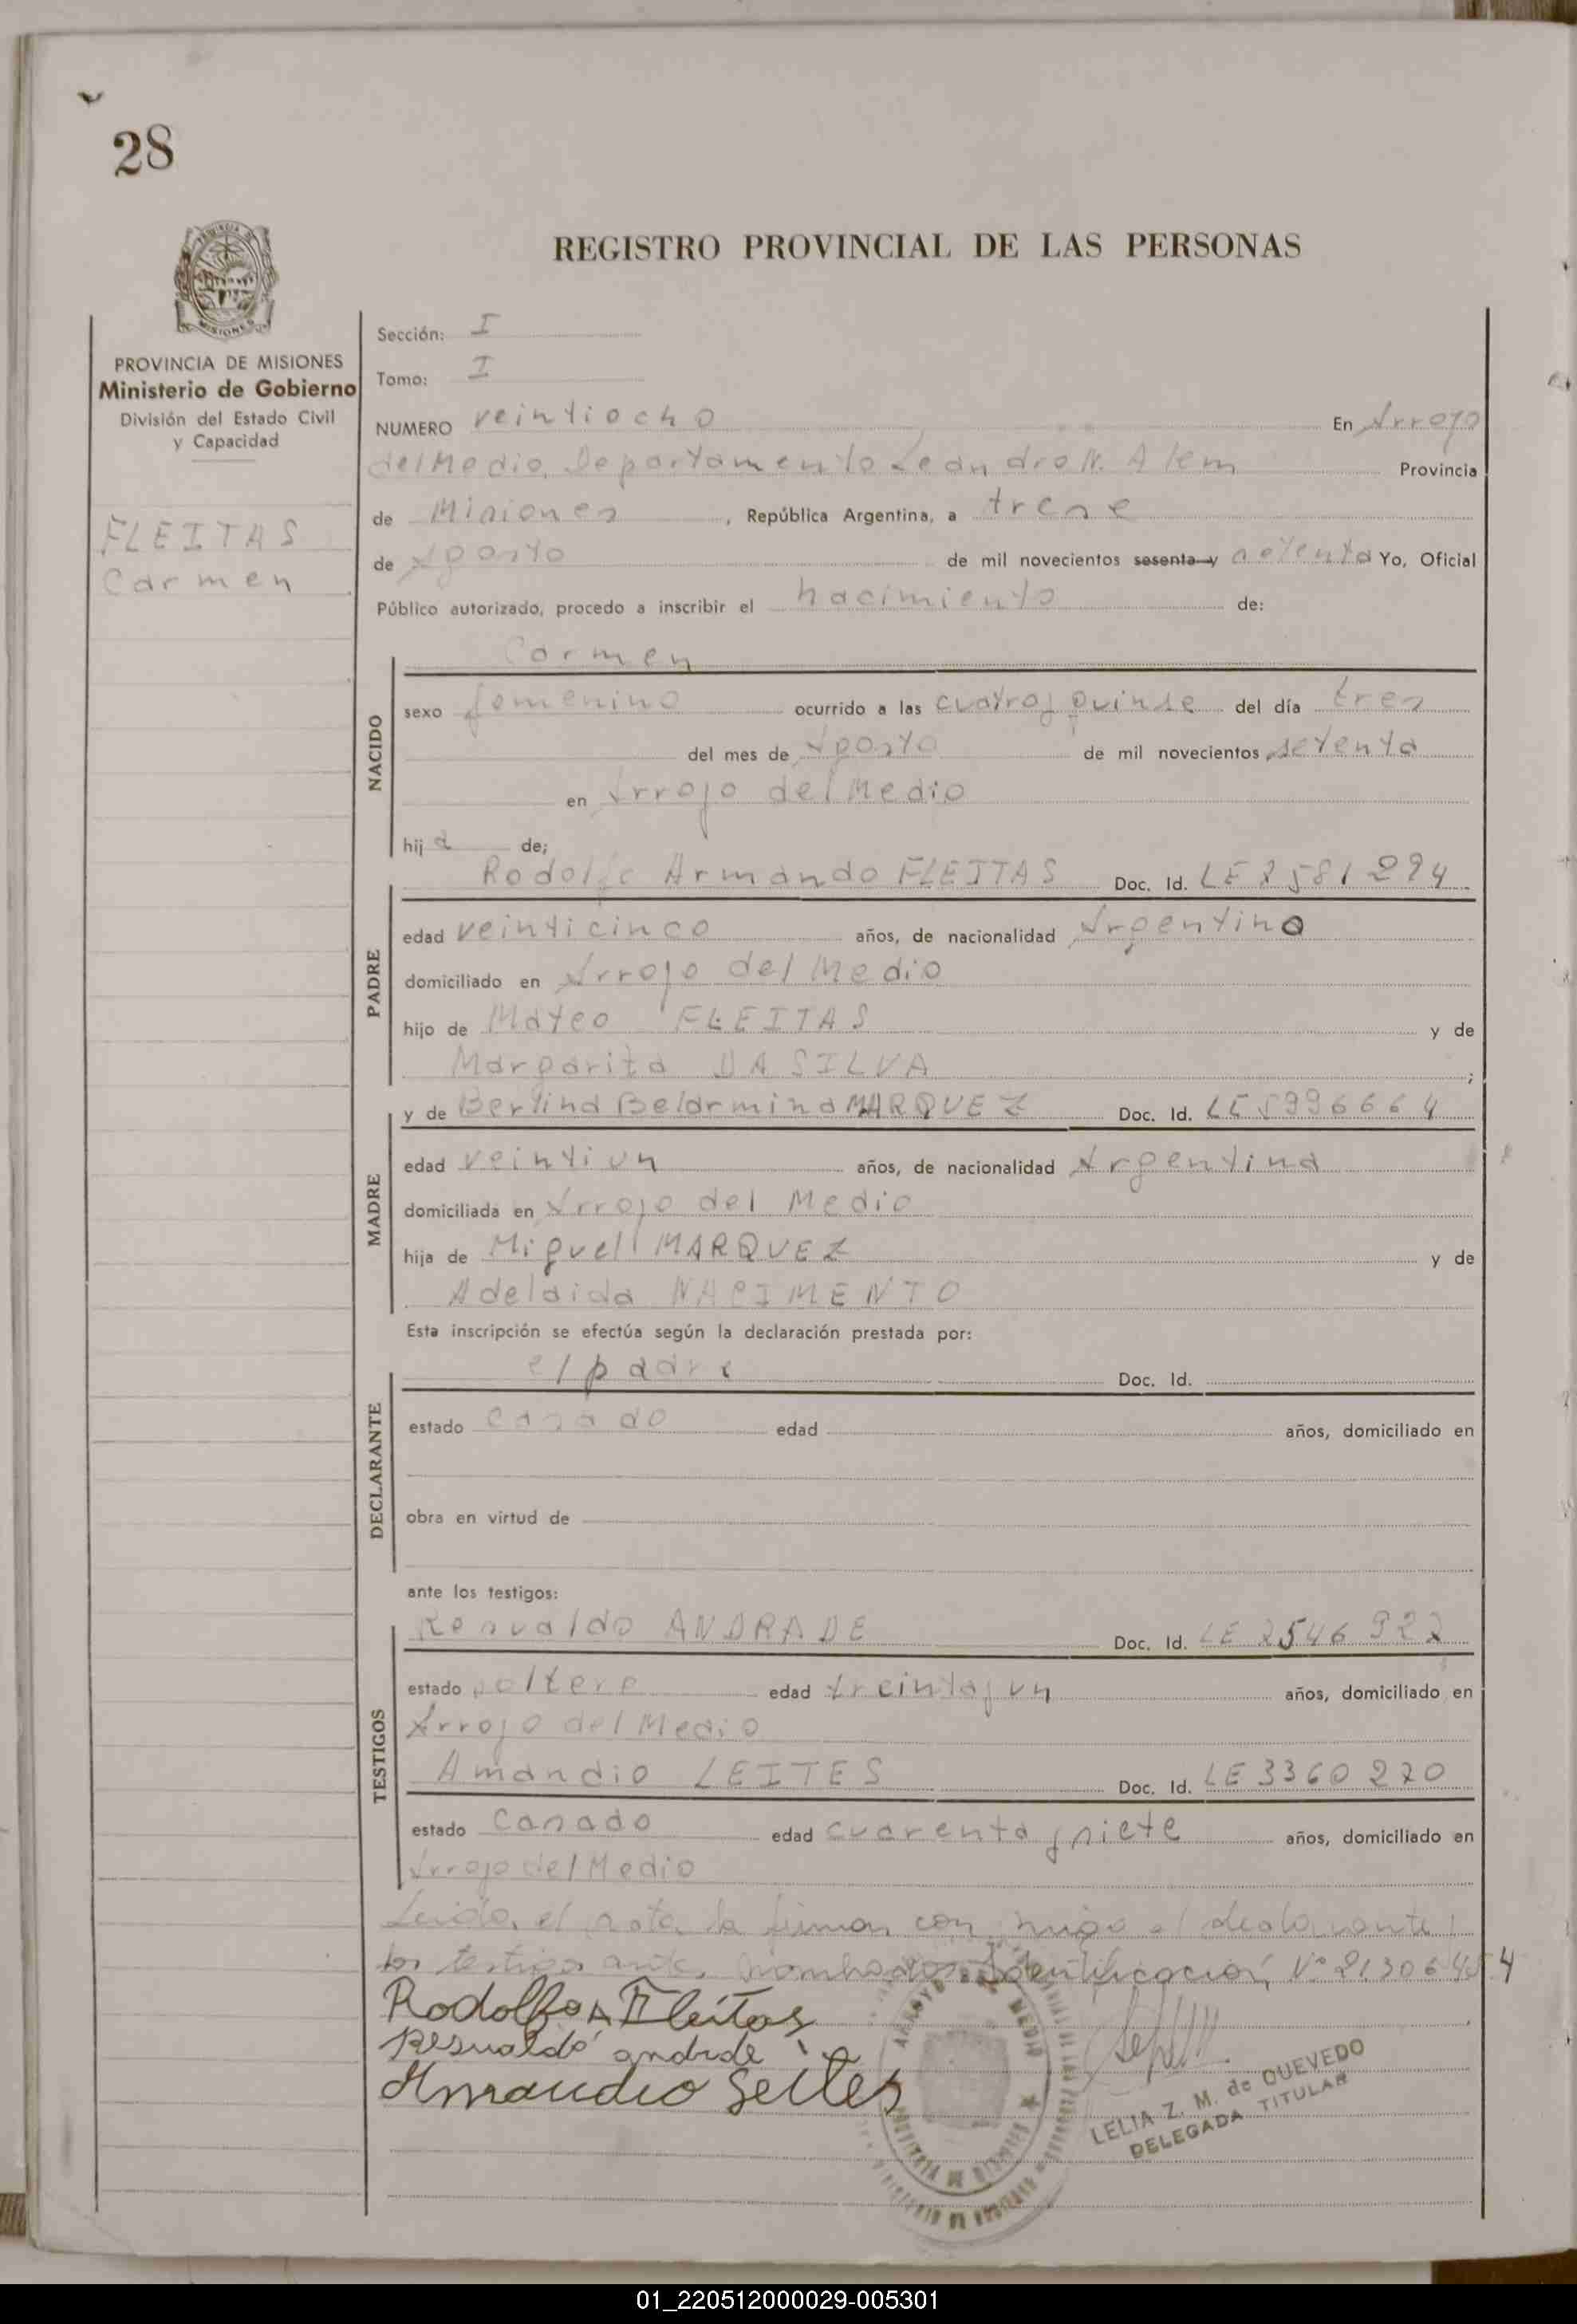 28
REGISTRO PROVINCIAL DE LAS PERSONAS
PROVINCIA DE MISIONES
Ministerio de Gobierno
División del Estado Civil
y Capacidad
FLEITAS
Carmen
Sección: I
Tomo: I
NUMERO veintiocho En Arroyo
del Medio, Departamento Leandro N. Alem Provincia
de Misiones, República Argentina, a trese
de Agosto de mil novecientos sesenta y setenta Yo, Oficial
Público autorizado, procedo a inscribir el nacimiento de:
NACIDO
Carmen
sexo femenino ocurrido a las cuatro y quinse del día tres
del mes de Agosto de mil novecientos setenta
en Arroyo del Medio
hija de;
PADRE
Rodolfo Armando FLEITAS Doc. Id. LE 7581294
edad veinticinco años, de nacionalidad Argentina
domiciliado en Arroyo del Medio
hijo de Mateo FLEITAS y de
Margarita DA SILVA ;
MADRE
y de Bertina Belarmina MARQUEZ Doc. Id. LE 5996664
edad veintiun años, de nacionalidad Argentina
domiciliada en Arroyo del Medio
hija de Miguel MARQUEZ y de
Adelaida NACIMENTO
Esta inscripción se efectúa según la declaración prestada por:
DECLARANTE
el padre Doc. Id.
estado casado edad años, domiciliado en
obra en virtud de
ante los testigos:
TESTIGOS
Resvaldo ANDRADE Doc. Id. LE 7546922
estado soltero edad treinta y un años, domiciliado en
Arroyo del Medio
Amandio LEITES Doc. Id. LE 3360270
estado Casado edad cuarenta y siete años, domiciliado en
Arroyo del Medio
Leida el acta la firman con migo el declarante y
los testigos ante nombrados. Identificación, Nº 21.306.454
Rodolfo A Fleitas
Resualdo andrade
Amandio Leites
ARROYO DEL MEDIO
LELIA Z. M. de QUEVEDO
DELEGADA TITULAR
01_220512000029-005301